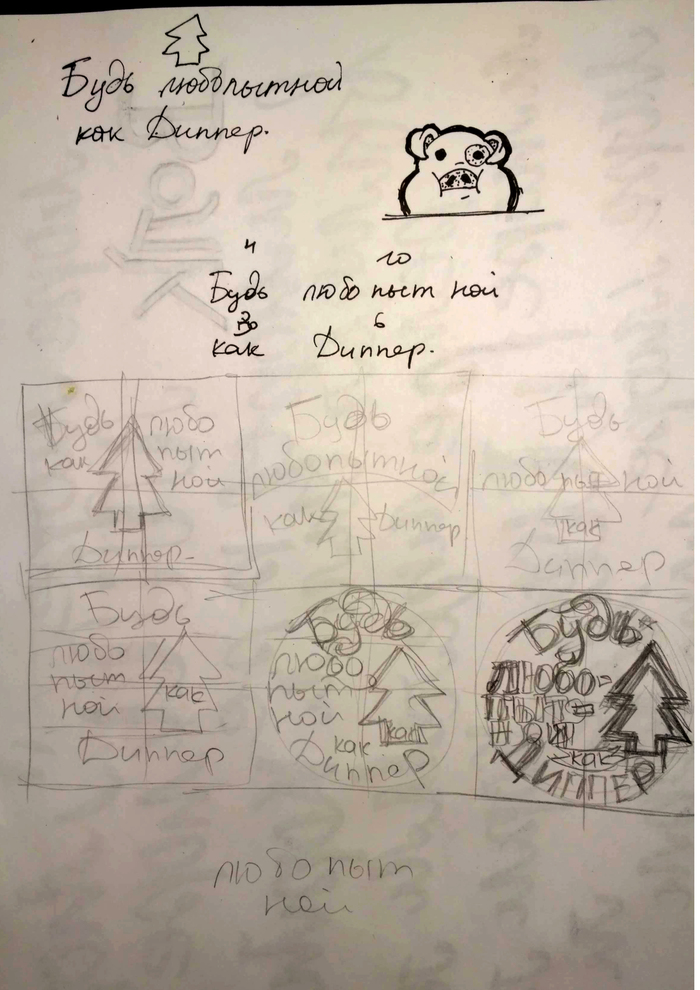 Будь любопытной
как Диппер.
4 10
Будь любо пыт ной
3 6
как Диппер.
Будь любо
как пыт
ной
Диппер
Будь
любопытной
как Диппер
Будь
любо пыт ной
как
Диппер
Будь
любо
пыт как
ной
Диппер
Будь
любо
пыт
ной как
как
Диппер
Будь
ЛЮБО-
ПЫТ-
НОЙ
как
ДИППЕР
любо пыт
ной